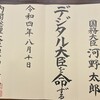 国務大臣 河野太郎
デジタル大臣を命ずる
令和四年八月十日
内閣総理大臣